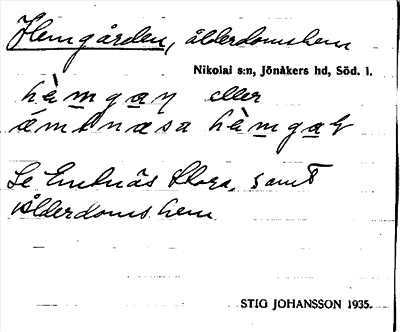 Hemgården, ålderdomshem
Nikolai s:n, Jönåkers hd, Söd. l.
hèmgaɳ eller
hèmgaɳ
Se Enknäs Stora, samt
Ålderdomshem
STIG JOHANSSON 1935.